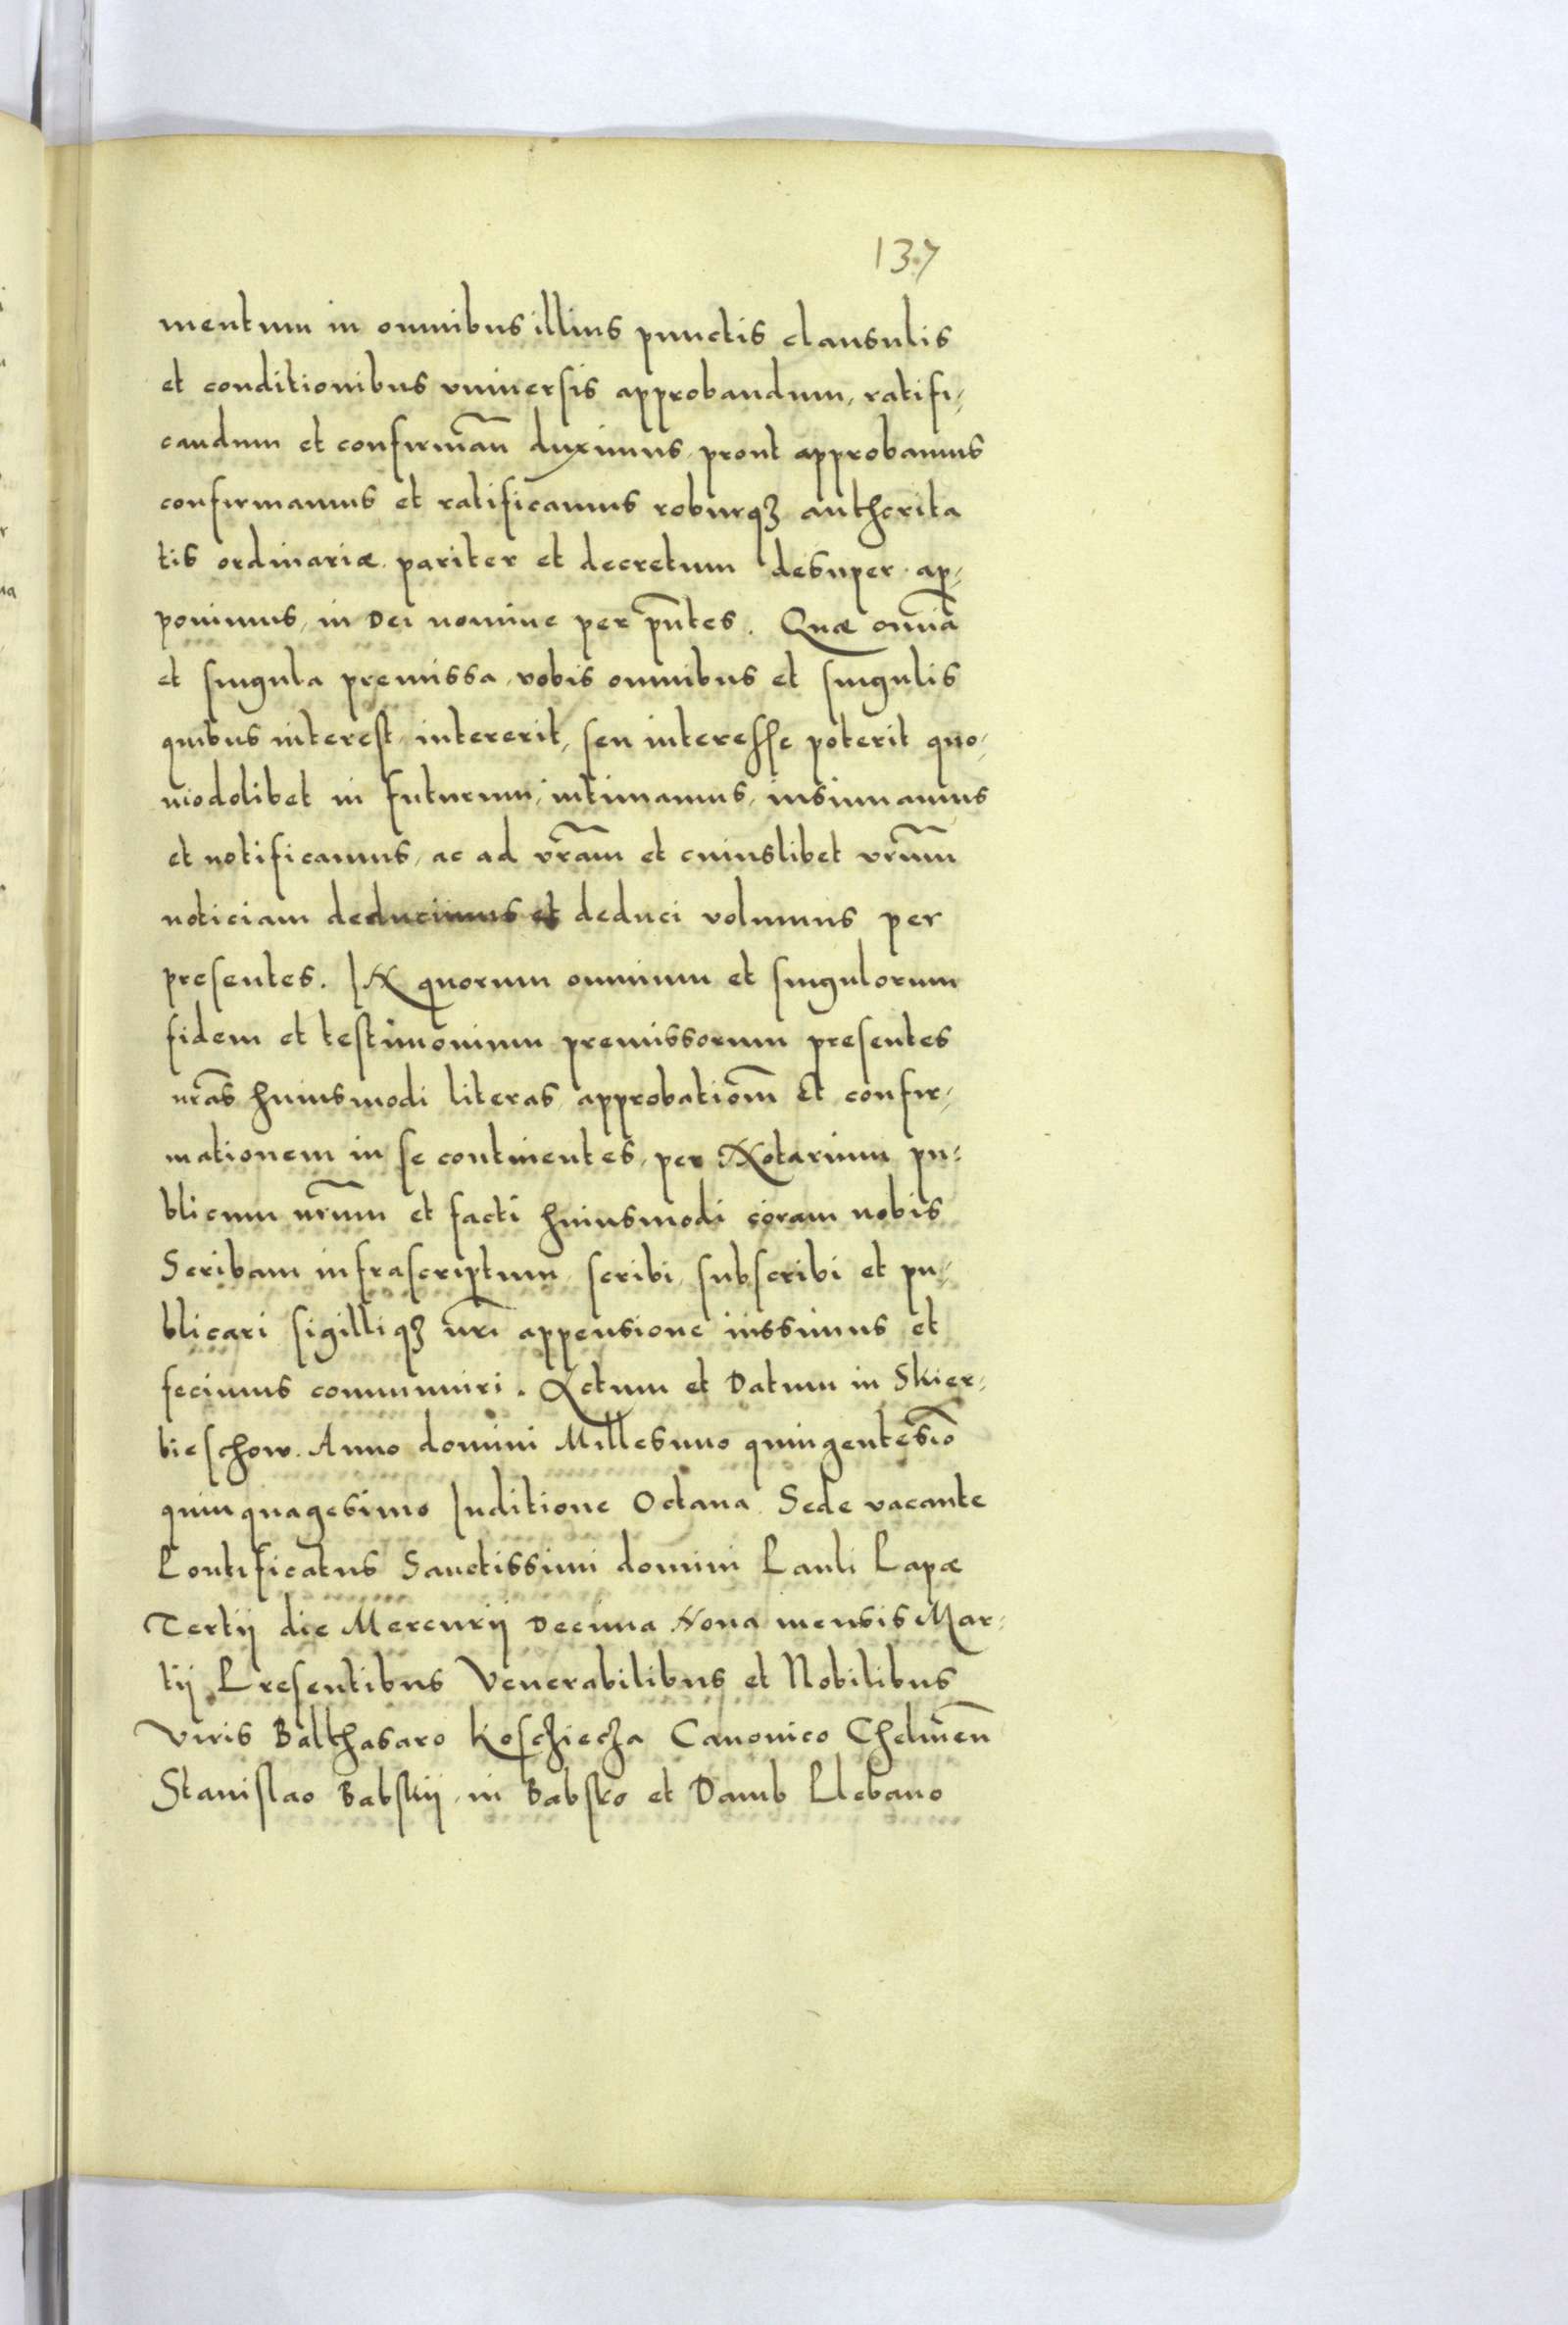 137
mentum in omnibus illius punctis clausulis
et conditionibus vniuersis approbandum, ratifi,
candum et confirmãn duximus, prout approbamus
confirmamus et ratificamus roburqꝫ authorita
tis ordinariæ pariter et decretum desuper ap,
ponimus, in Dei nomine per pñtes. Quæ om̃ia
et singula premissa, vobis omnibus et singulis
quibus interest, intererit, seu interesse poterit quo,
modolibet in futurum, intimamus, insinuamus
et notificamus, ac ad vr̃am et cuiuslibet vr̃um
noticiam deducimus et deduci volumus per
presentes. IN quorum omnium et singulorum
fidem et testimonium premissorum presentes
nr̃as huiusmodi literas approbatiom̃ et confir,
mationem in se continentes, per Notarium pu,
blicum nr̃um et facti huiusmodi coram nobis
Scribam infrascriptum scribi, subscribi et pu,
blicari sigilliqꝫ nr̃i appensione iussimus et
fecimus communiri. Actum et Datum in Skier,
bieschow. Anno domini Millesimo quingentesĩo
quinquagesimo Inditione Octaua Sede vacante
Pontificatus Sanctissimi domini Pauli Papæ
Tertij die Mercurij Decima Nona mensis Mar,
tij Presentibus Venerabilibus et Nobilibus
Viris Balthasaro Koscziecza Canonico Chelmeñ
Stanislao Babskij in Babsko et Damb Plebano